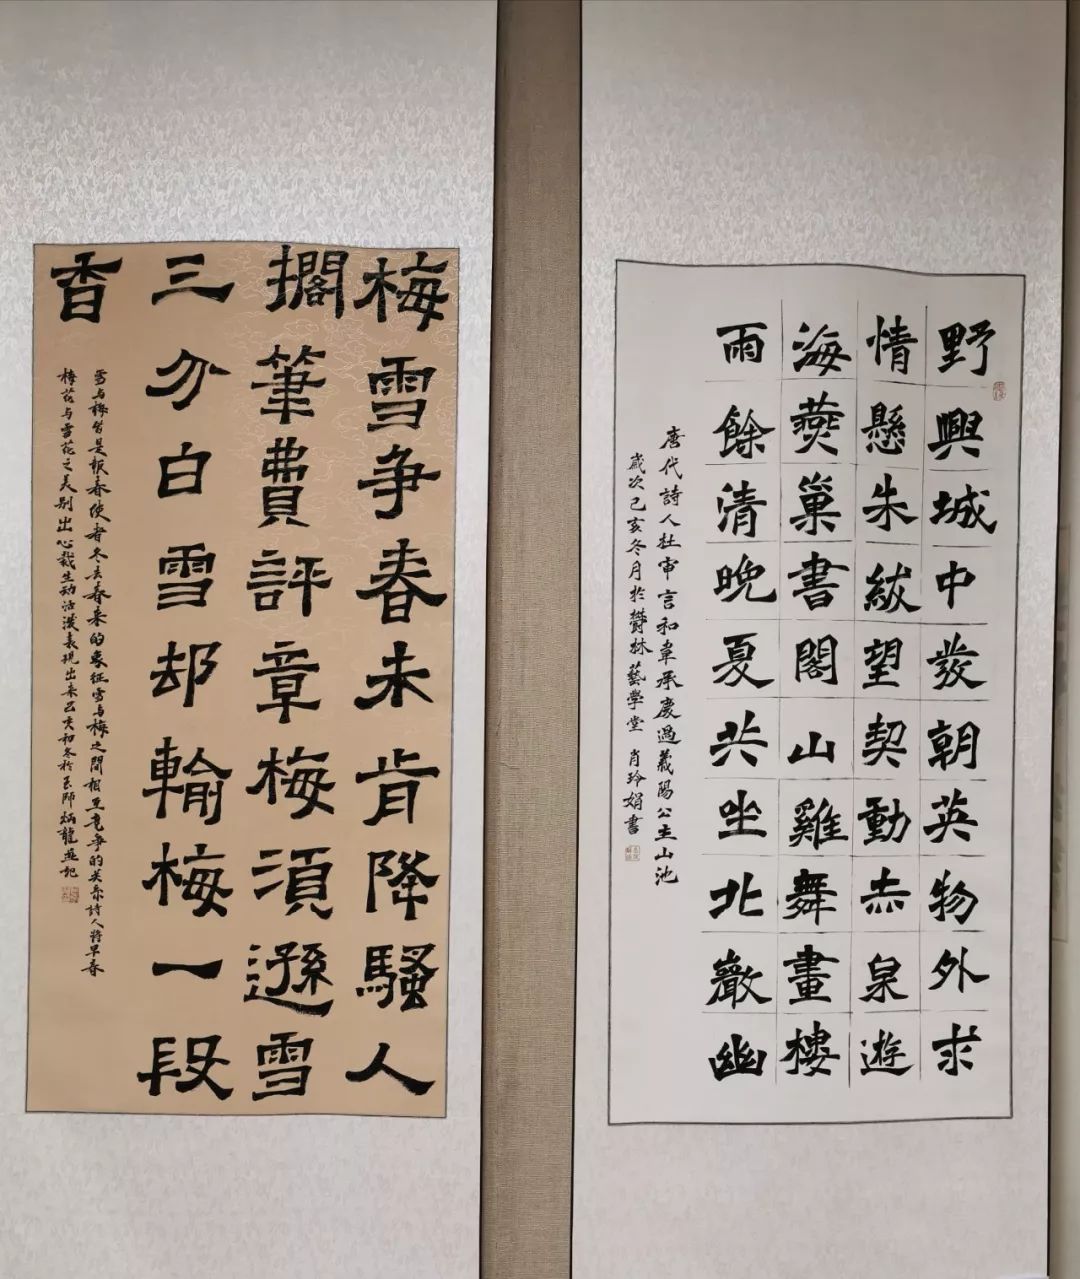 野興城中發朝英物外求
情懸朱紱望契動赤泉遊
海燕巢書閣山雞舞畫樓
雨餘清晚夏共坐北巖幽
唐代詩人杜审言和韋承慶過義陽公主山池
歲次己亥冬月於欝林藝學堂 肖玲娟書
梅雪争春未肯降騷人
擱筆費評章梅湏遜雪
三分白雪却輸梅一段
香
雪与梅皆是报春使者冬去春来的象征雪与梅之间相互竞争的关系詩人将早春
梅花与雪花之美别出心裁生动活潑表现出来己亥初冬於玉师炳龍並記